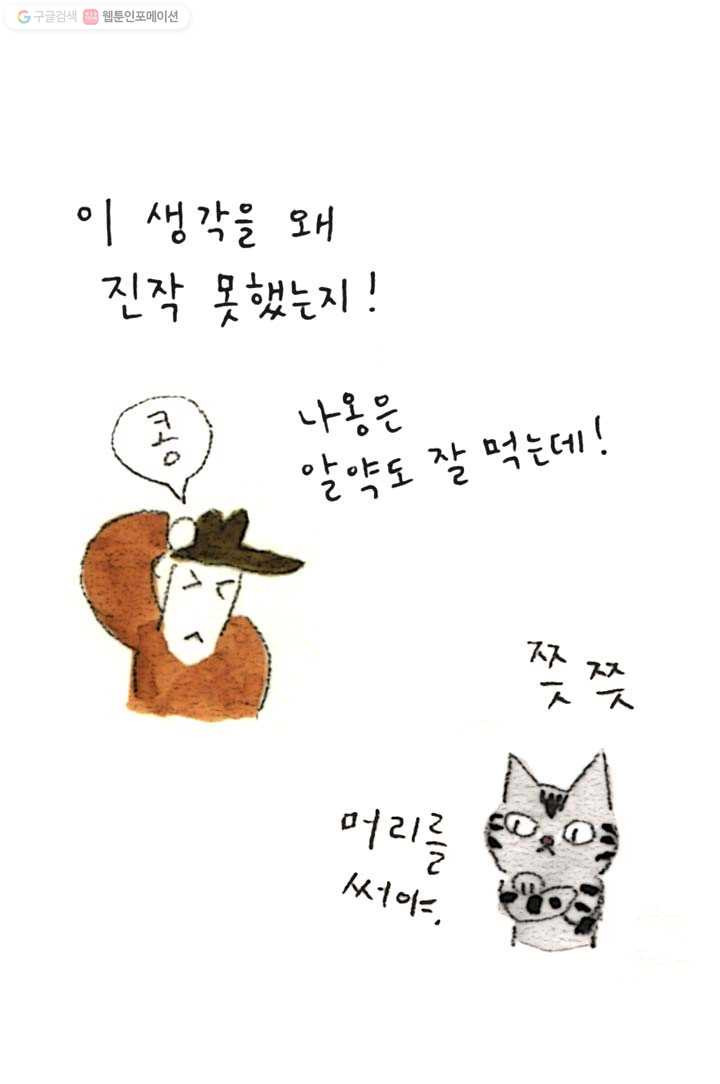 구글검색 웹툰인포메이션
이 생각을 왜
진작 못했는지!
콩
나옹은
알약도 잘 먹는데!
쯧 쯧
머리를
써야.